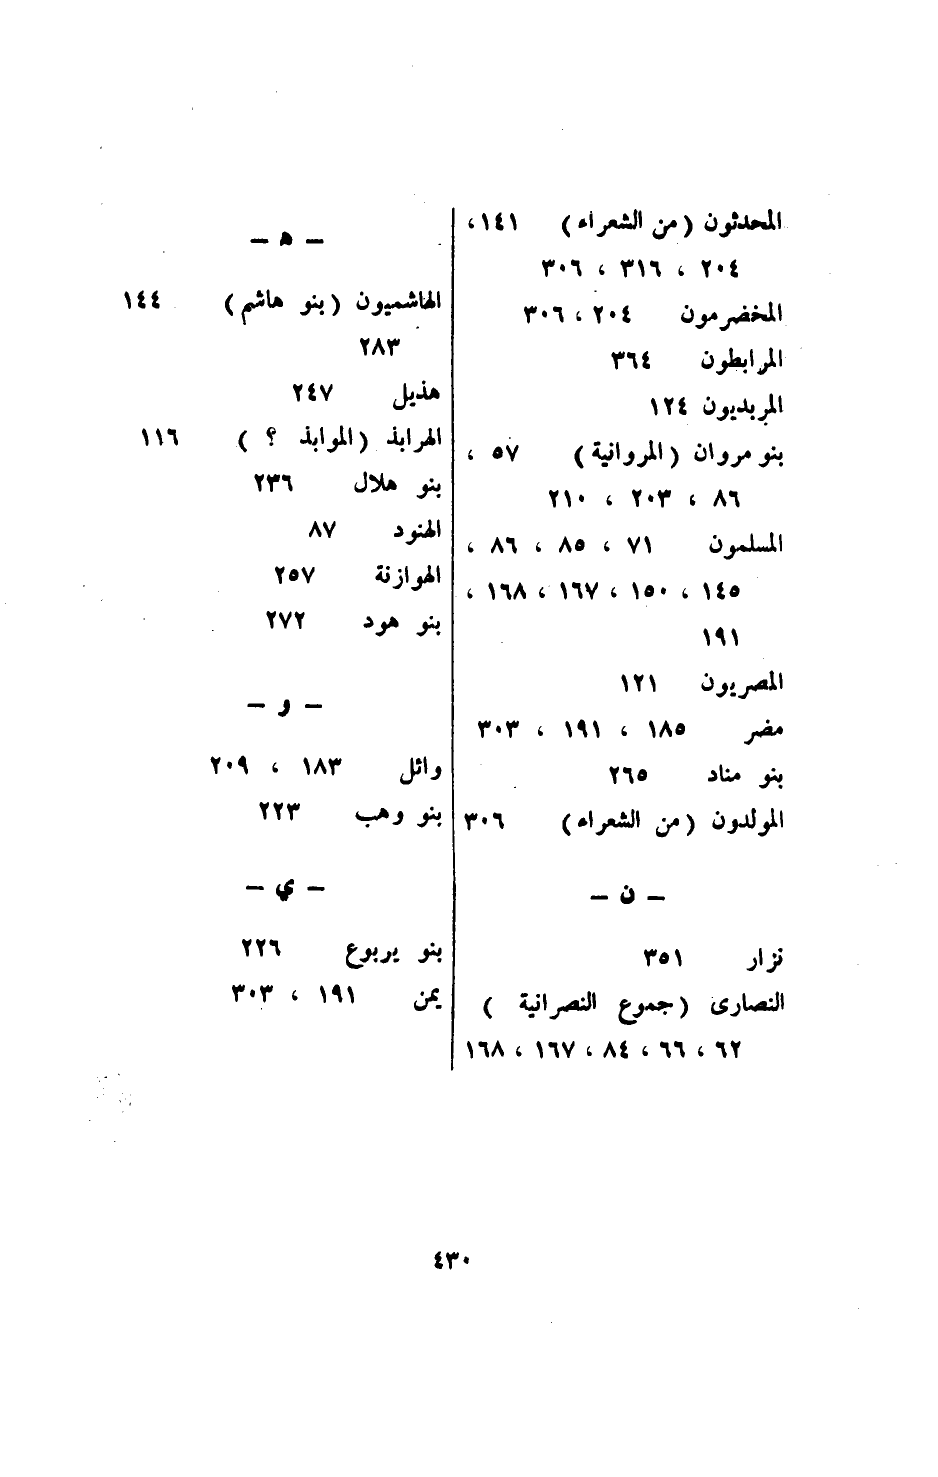 المحدثون (من الشعراء) ١٤١،
٢٠٤ ، ٣١٦ ، ٣٠٦
المخضرمون ٢٠٤ ، ٣٠٦
المرابطون ٣٦٤
المربديون ١٢٤
بنو مروان (المروانية) ٥٧ ،
٨٦ ، ٢٠٣ ، ٢١٠
المسلمون ٧١ ، ٨٥ ، ٨٦ ،
١٤٥ ، ١٥٠ ، ١٦٧ ، ١٦٨ ،
١٩١
المصريون ١٢١
مضر ١٨٥ ، ١٩١ ، ٣٠٣
بنو مناد ٢٦٥
المولدون (من الشعراء) ٣٠٦
– ن –
نزار ٣٥١
النصارى (جموع النصرانية )
٦٢ ، ٦٦ ، ٨٤ ، ١٦٧ ، ١٦٨
– ه –
الهاشميون (بنو هاشم) ١٤٤
٢٨٣
هذيل ٢٤٧
الهرابذ (الموابذ ؟ ) ١١٦
بنو هلال ٢٣٦
الهنود ٨٧
الهوازنة ٢٥٧
بنو هود ٢٧٢
– و –
وائل ١٨٣ ، ٢٠٩
بنو وهب ٢٢٣
– ي –
بنو يربوع ٢٢٦
يمن ١٩١ ، ٣٠٣
٤٣٠